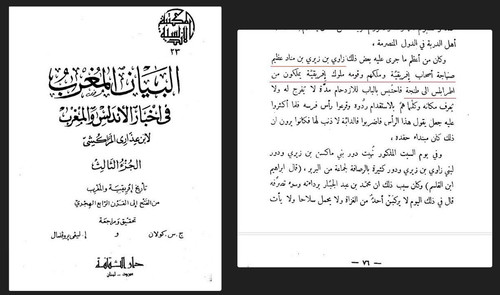 المكتبة
الأندلسية
٢٣
البيان المغرب
في أخبار الأندلس والمغرب
لابن عذاري المراكشي
الجزء الثالث
تاريخ إفريقية والمغرب
من الفتح إلى القرن الرابع الهجري
تحقيق ومراجعة
ج. س. كولان و إ. ليفي بروفنسال
دار الثقافة
بيروت - لبنان
أهل الدربة في الدول المتصرمة .
وكان من أعظم ما جرى عليه بعض ذلك زاوي بن زيري بن مناد عظيم
صنهاجة أصحاب إفريقية وملكهم وقومه ملوك إفريقية يملكون من
اطرابلس الى طنجة فاحتبس بالباب للازدحام مدة لا يفرج له ولا
يعرف مكانه وكلما هم بالاستقدام ردوه وقرعوا رأس فرسه فلما أكثروا
عليه جعل يقول هذا الرأس فاضربوا فالدابة لا ذنب لها فكانوا يرون ان
ذلك كان مبتدأ حقده .
وفي يوم السبت المذكور نهبت دور بني ماكسن بن زيري ودور
لبني زاوي بن زيري ودور كثيرة بالرصافة لجماعة من البربر ، (قال ابراهيم
ابن القاسم) وكان سبب ذلك ان محمد بن عبد الجبار برداءته وسوء تصرفه
قال في ذلك اليوم لا يركبن أحد من الغزاة ولا يحمل سلاحا ولا يأت
— ٧٦ —